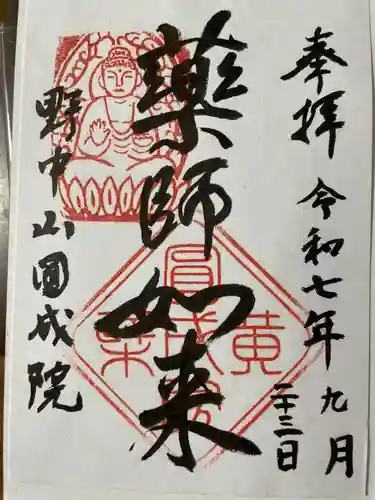 奉拝 令和七年九月
二十三日
薬師如来
野中山圓成院
黄
圓成
檗